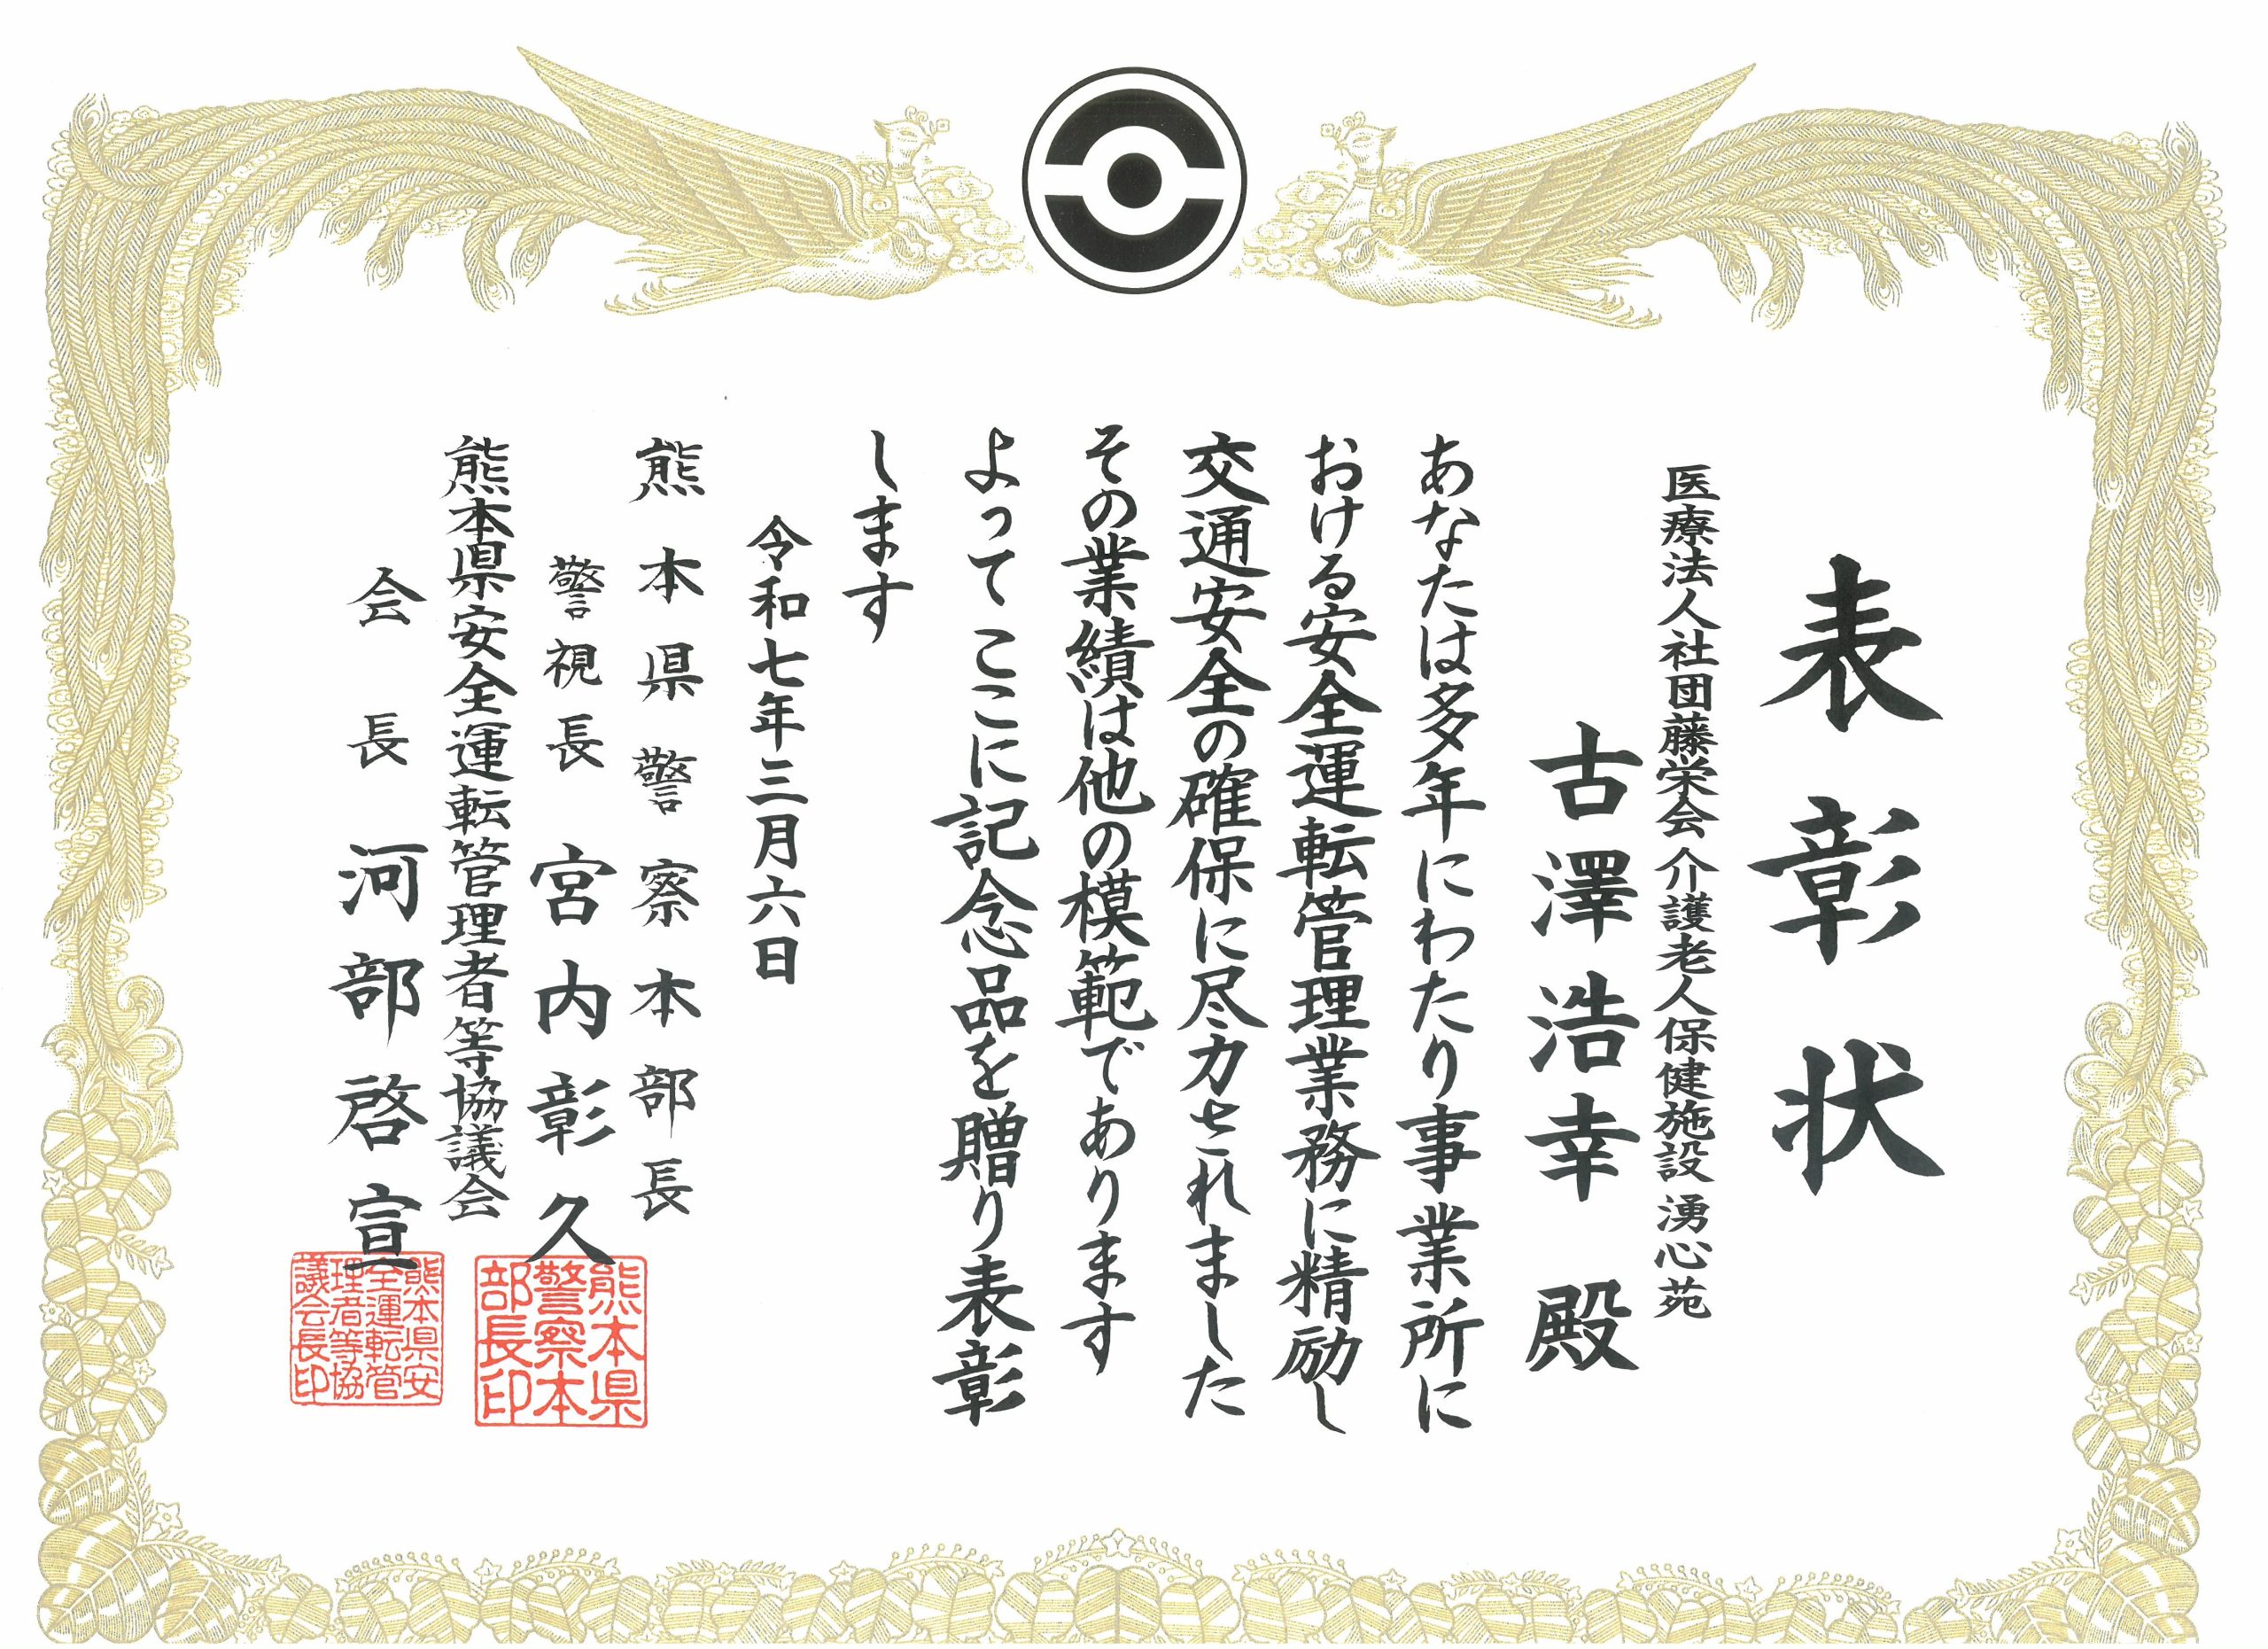 表彰状
医療法人社団藤栄会 介護老人保健施設 湧心苑
古澤浩幸 殿
あなたは多年にわたり事業所に
おける安全運転管理業務に精励し
交通安全の確保に尽力されました
その業績は他の模範であります
よってここに記念品を贈り表彰
します
令和七年三月六日
熊本県警察本部長
警視長 宮内彰久
熊本県安全運転管理者等協議会
会長 河部啓宣
熊本県
警察本
部長印
熊本県安
全運転管
理者等協
議会長印